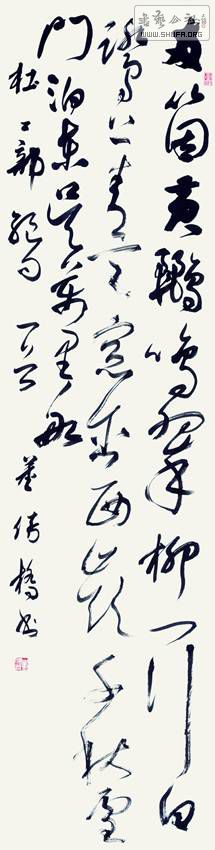 書藝公社
www.SHUFA.ORG
兩箇黃鸝鳴翠柳一行白
鷺上青天窗含西嶺千秋雪
門泊東吳萬里船
杜工部絕句一首